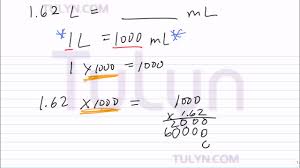 TULYN.COM
1.62 L = ______ mL
*1 L = 1000 mL*
1 x1000 = 1000
Tulyn
1.62 x1000 = 1000
x 1.62
2000
60000
0
TULYN.COM